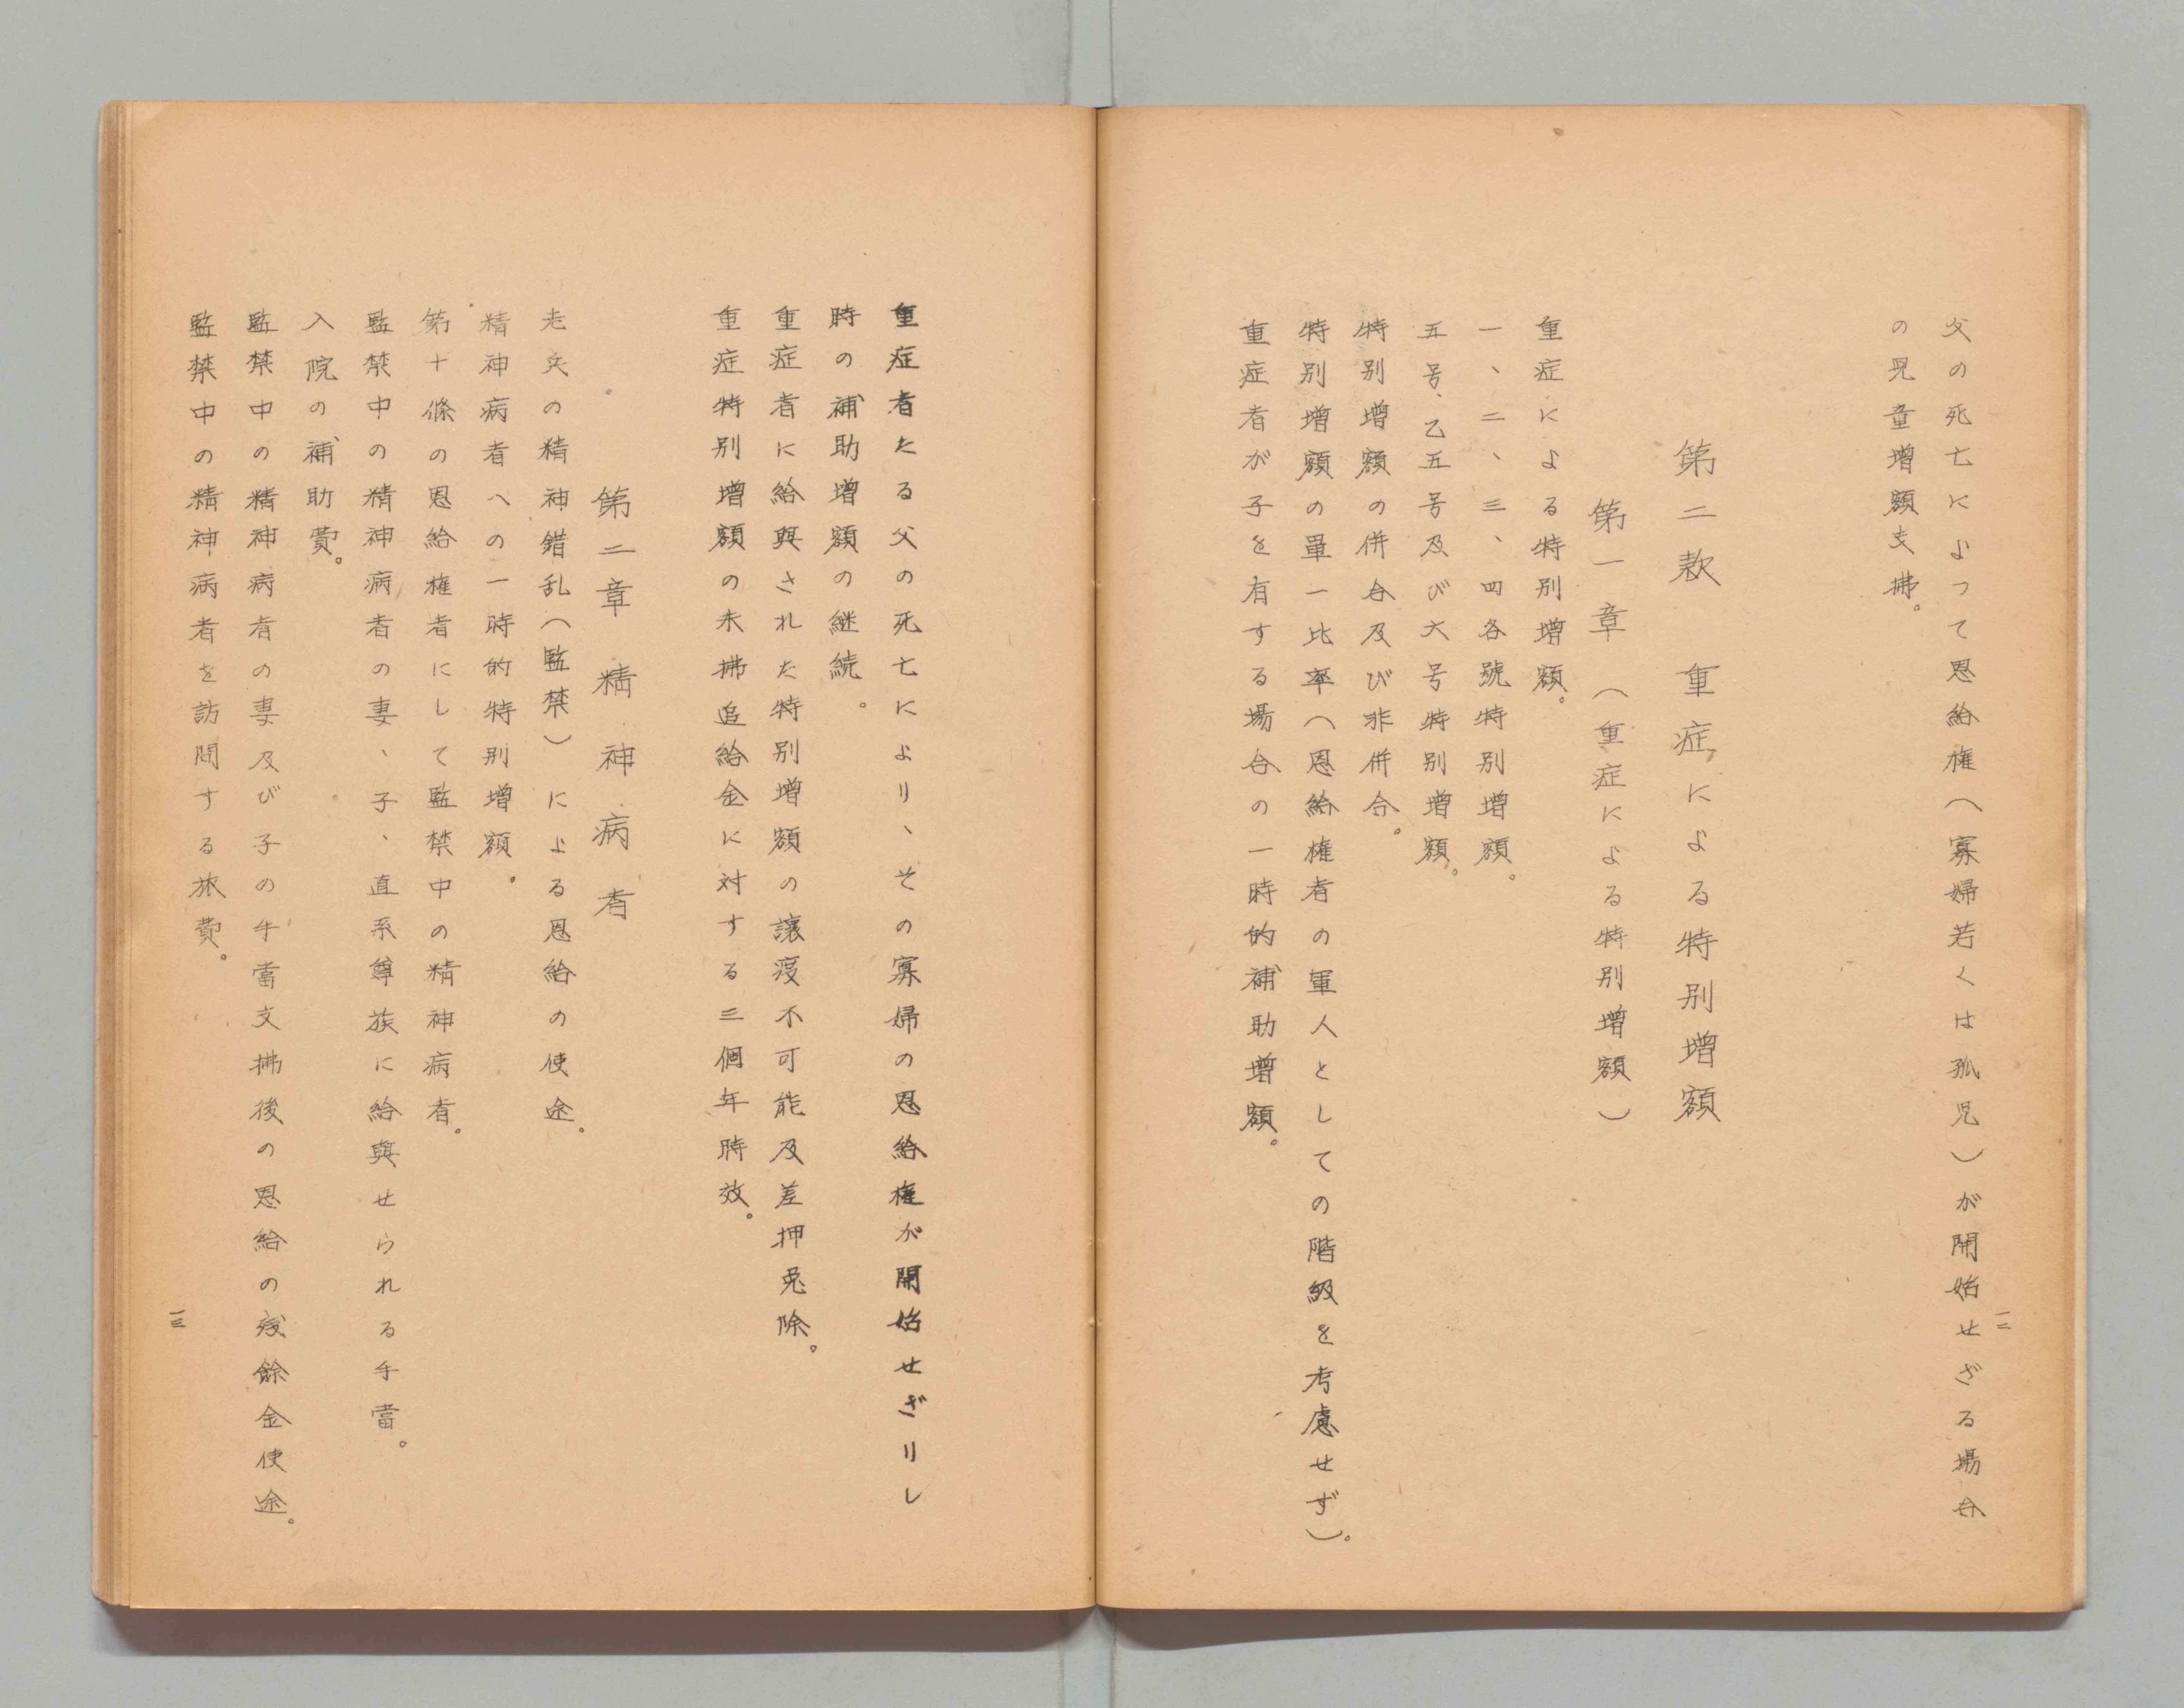 父の死亡によって恩給権（寡婦若くは孤児）が開始せざる場合
の児童増額支拂。
第二款　重症による特別増額
第一章（重症による特別増額）
重症による特別増額。
一、二、三、四各號特別増額。
五号、乙五号及び六号特別増額。
特別増額の併合及び非併合。
特別増額の單一比率（恩給権者の軍人としての階級を考慮せず）。
重症者が子を有する場合の一時的補助増額。
一二
重症者たる父の死亡により、その寡婦の恩給権が開始せざりし
時の補助増額の継続。
重症者に給與された特別増額の讓渡不可能及差押免除。
重症特別増額の未拂追給金に対する三個年時效。
第二章　精神病者
老兵の精神錯乱（監禁）による恩給の使途。
精神病者への一時的特別増額。
第十條の恩給権者にして監禁中の精神病者。
監禁中の精神病者の妻、子、直系尊族に給與せられる手當。
入院の補助費。
監禁中の精神病者の妻及び子の手當支拂後の恩給の残餘金使途。
監禁中の精神病者を訪問する旅費。
一三